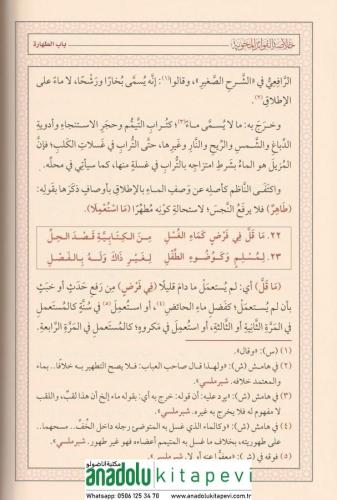 خلاصة الفوائد المحوية
باب الطهارة
الرَّافِعِيُّ في «الشَّرحِ الصَّغيرِ»، وقالوا(١): إنَّه يُسمَّى بُخارًا ورَشْحًا، لا ماءً على
الإطلاقِ(٢).
وخرَجَ به: ما لا يُسمَّى مــاءً(٣)؛ كتُــرابِ التَّيمُّمِ وحجَرِ الاستنجاءِ وأدويةِ
الدِّباغِ والشَّمسِ والرِّيحِ والنَّارِ وغيرِها، حتَّى التُّرابُ في غسَلاتِ الكلبِ؛ فإنَّ
المُزيلَ هو الماءُ بشرطِ امتزاجِه بالتُّرابِ في غسلةٍ منها، كما سيأتي في محلِّه.
واكتفَى النَّاظم كأصلِه عن وَصفِ المــاءِ بالإطلاقِ بأوصافٍ ذكَرَها بقولِه:
(طَاهِرٌ) فلا يرفَعُ النَّجسُ؛ لاستحالةِ كونِه مُطهِّرًا (مَا اسْتُعْمِلَا).
٢٢. مَا قَلَّ فِي فَرْضٍ كَمَاءِ الغُسْلِ مِنَ الكِتَابِيَّةِ قَصْدَ الحِلِّ
٢٣. لِمُسْلِمٍ وَكَوُضُوءِ الطِّفْلِ لِغَيْرِ ذَاكَ وَلَهُ بِالفَضْلِ
(مَا قَلَّ) أي: لم يُستعمَلْ ما دامَ قليلًا (فِي فَرْضٍ) مِن رفعِ حدَثٍ أو خبَثٍ
بأن لم يُستعمَلْ؛ كفَضلِ ماءِ الحائضِ(٤)، أو استُعمِلَ(٥) في سُنَّةٍ كالمُستعمَلِ
في المرَّةِ الثَّانيةِ أو الثَّالثةِ، أو استُعمِلَ في مكروهٍ؛ كالمُستعمَلِ في المَرَّةِ الرَّابعةِ.
(١) (س): «وقال».
(٢) في هامش (ش): «ولهذا قال صاحب العباب: فلا يصح التطهير به خلافًا.. بماء
والمعتمد خلافه. شبرملسي».
(٣) في هامش (ش): «يرد عليه: أن قوله: خرج به أي: بقوله ماء إلخ أن هذا لقبٌ، واللقب
لا مفهوم له فلا يخرج به غيره. شبرملسي».
(٤) في هامش (ش): «وكالماء الذي غسل به المتوضئ رجله داخل الخُفّ.. مسحهما..
على طهوريته، بخلاف ما غسل به المتيمم أعضاءه فهو غير طهور. شبرملسي».
(٥) فوقه في (ش):
مكتبة اناضولو
anadolukitapevi
Whatsapp: 0506 125 34 70 www.anadolukitapevi.com